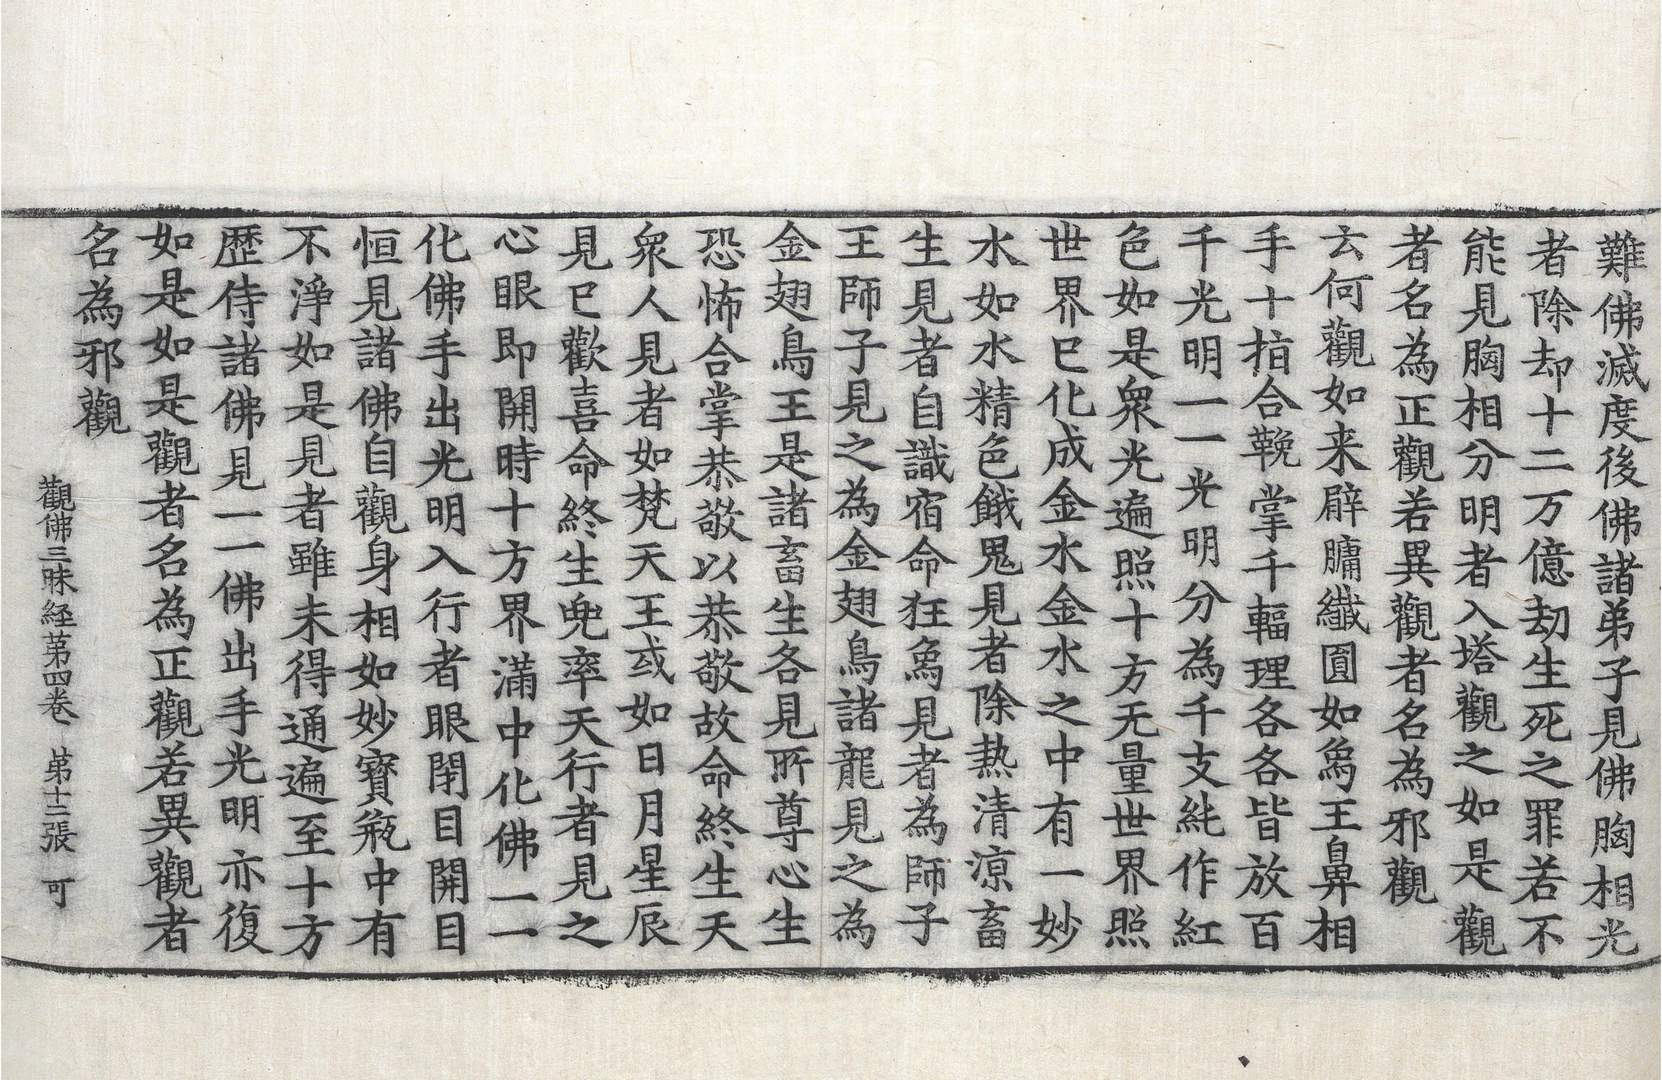 難佛滅度後佛諸弟子見佛胸相光
者除却十二万億劫生死之罪若不
能見胸相分明者入塔觀之如是觀
者名為正觀若異觀者名為邪觀
云何觀如来臂膊纖圓如象王鼻相
手十指合鞔掌千輻理各各皆放百
千光明一一光明分為千支純作紅
色如是衆光遍照十方无量世界照
世界已化成金水金水之中有一妙
水如水精色餓鬼見者除热清涼畜
生見者自識宿命狂象見者為師子
王師子見之為金翅鳥諸龍見之為
金翅鳥王是諸畜生各見所尊心生
恐怖合掌恭敬以恭敬故命終生天
衆人見者如梵天王或如日月星辰
見已歡喜命終生兜率天行者見之
心眼即開時十方界滿中化佛一一
化佛手出光明入行者眼閉目開目
恒見諸佛自觀身相如妙寶瓶中有
不淨如是見者雖未得通遍至十方
歷侍諸佛見一一佛出手光明亦復
如是如是觀者名為正觀若異觀者
名為邪觀
觀佛三昧経第四卷　第十二張　可